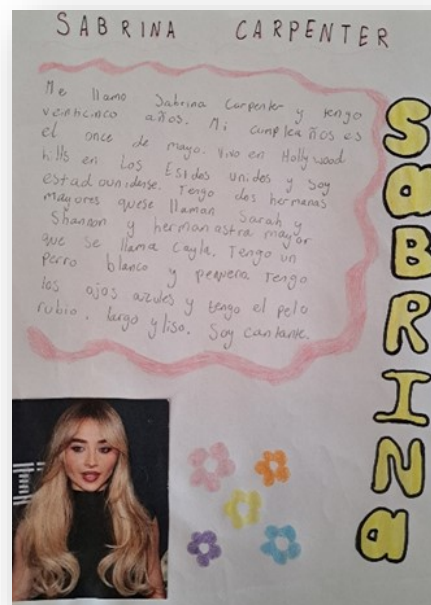 SABRINA CARPENTER
Me llamo Sabrina Carpenter y tengo
veinticinco años. Mi cumpleaños es
el once de mayo. Vivo en Hollywood
hills en Los Estdos unidos y soy
estadounidense. Tengo dos hermanas
mayores quese llaman Sarah y
Shannon y hermanastra mayor
que se llama Cayla. Tengo un
perro blanco y pequeria Tengo
los ojos azules y tengo el pelo
rubio, largo y liso. Soy cantante.
SaBRINa